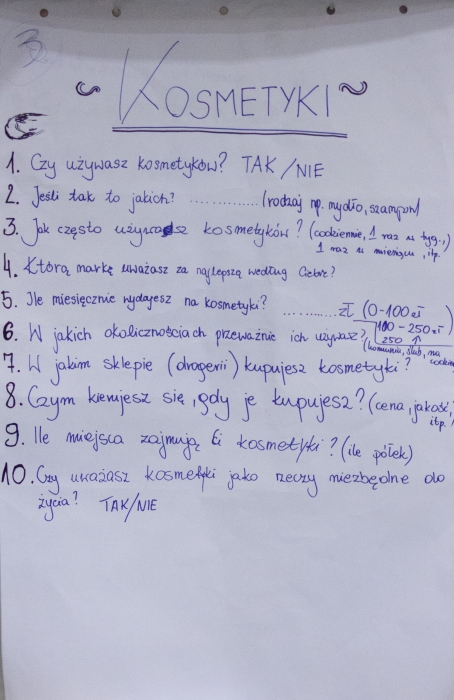 3
KOSMETYKI
1. Czy używasz kosmetyków? TAK/NIE
2. Jeśli tak to jakich? .............. (rodzaj np. mydło, szampon)
3. Jak często używasz kosmetyków? (codziennie, 1 raz w tyg.,)
1 raz w miesiącu, itp.
4. Którą markę uważasz za najlepszą według Ciebie?
5. Ile miesięcznie wydajesz na kosmetyki? ........... zł (0-100zł
100-250zł
250 ↑
6. W jakich okolicznościach przeważnie ich używasz?
(komunia, ślub, na
7. W jakim sklepie (drogerii) kupujesz kosmetyki?
8. Czym kierujesz się, gdy je kupujesz? (cena, jakość,
itp.)
9. Ile miejsca zajmują Ci kosmetyki? (ile półek)
10. Czy uważasz kosmetyki jako rzeczy niezbędne do
życia? TAK/NIE